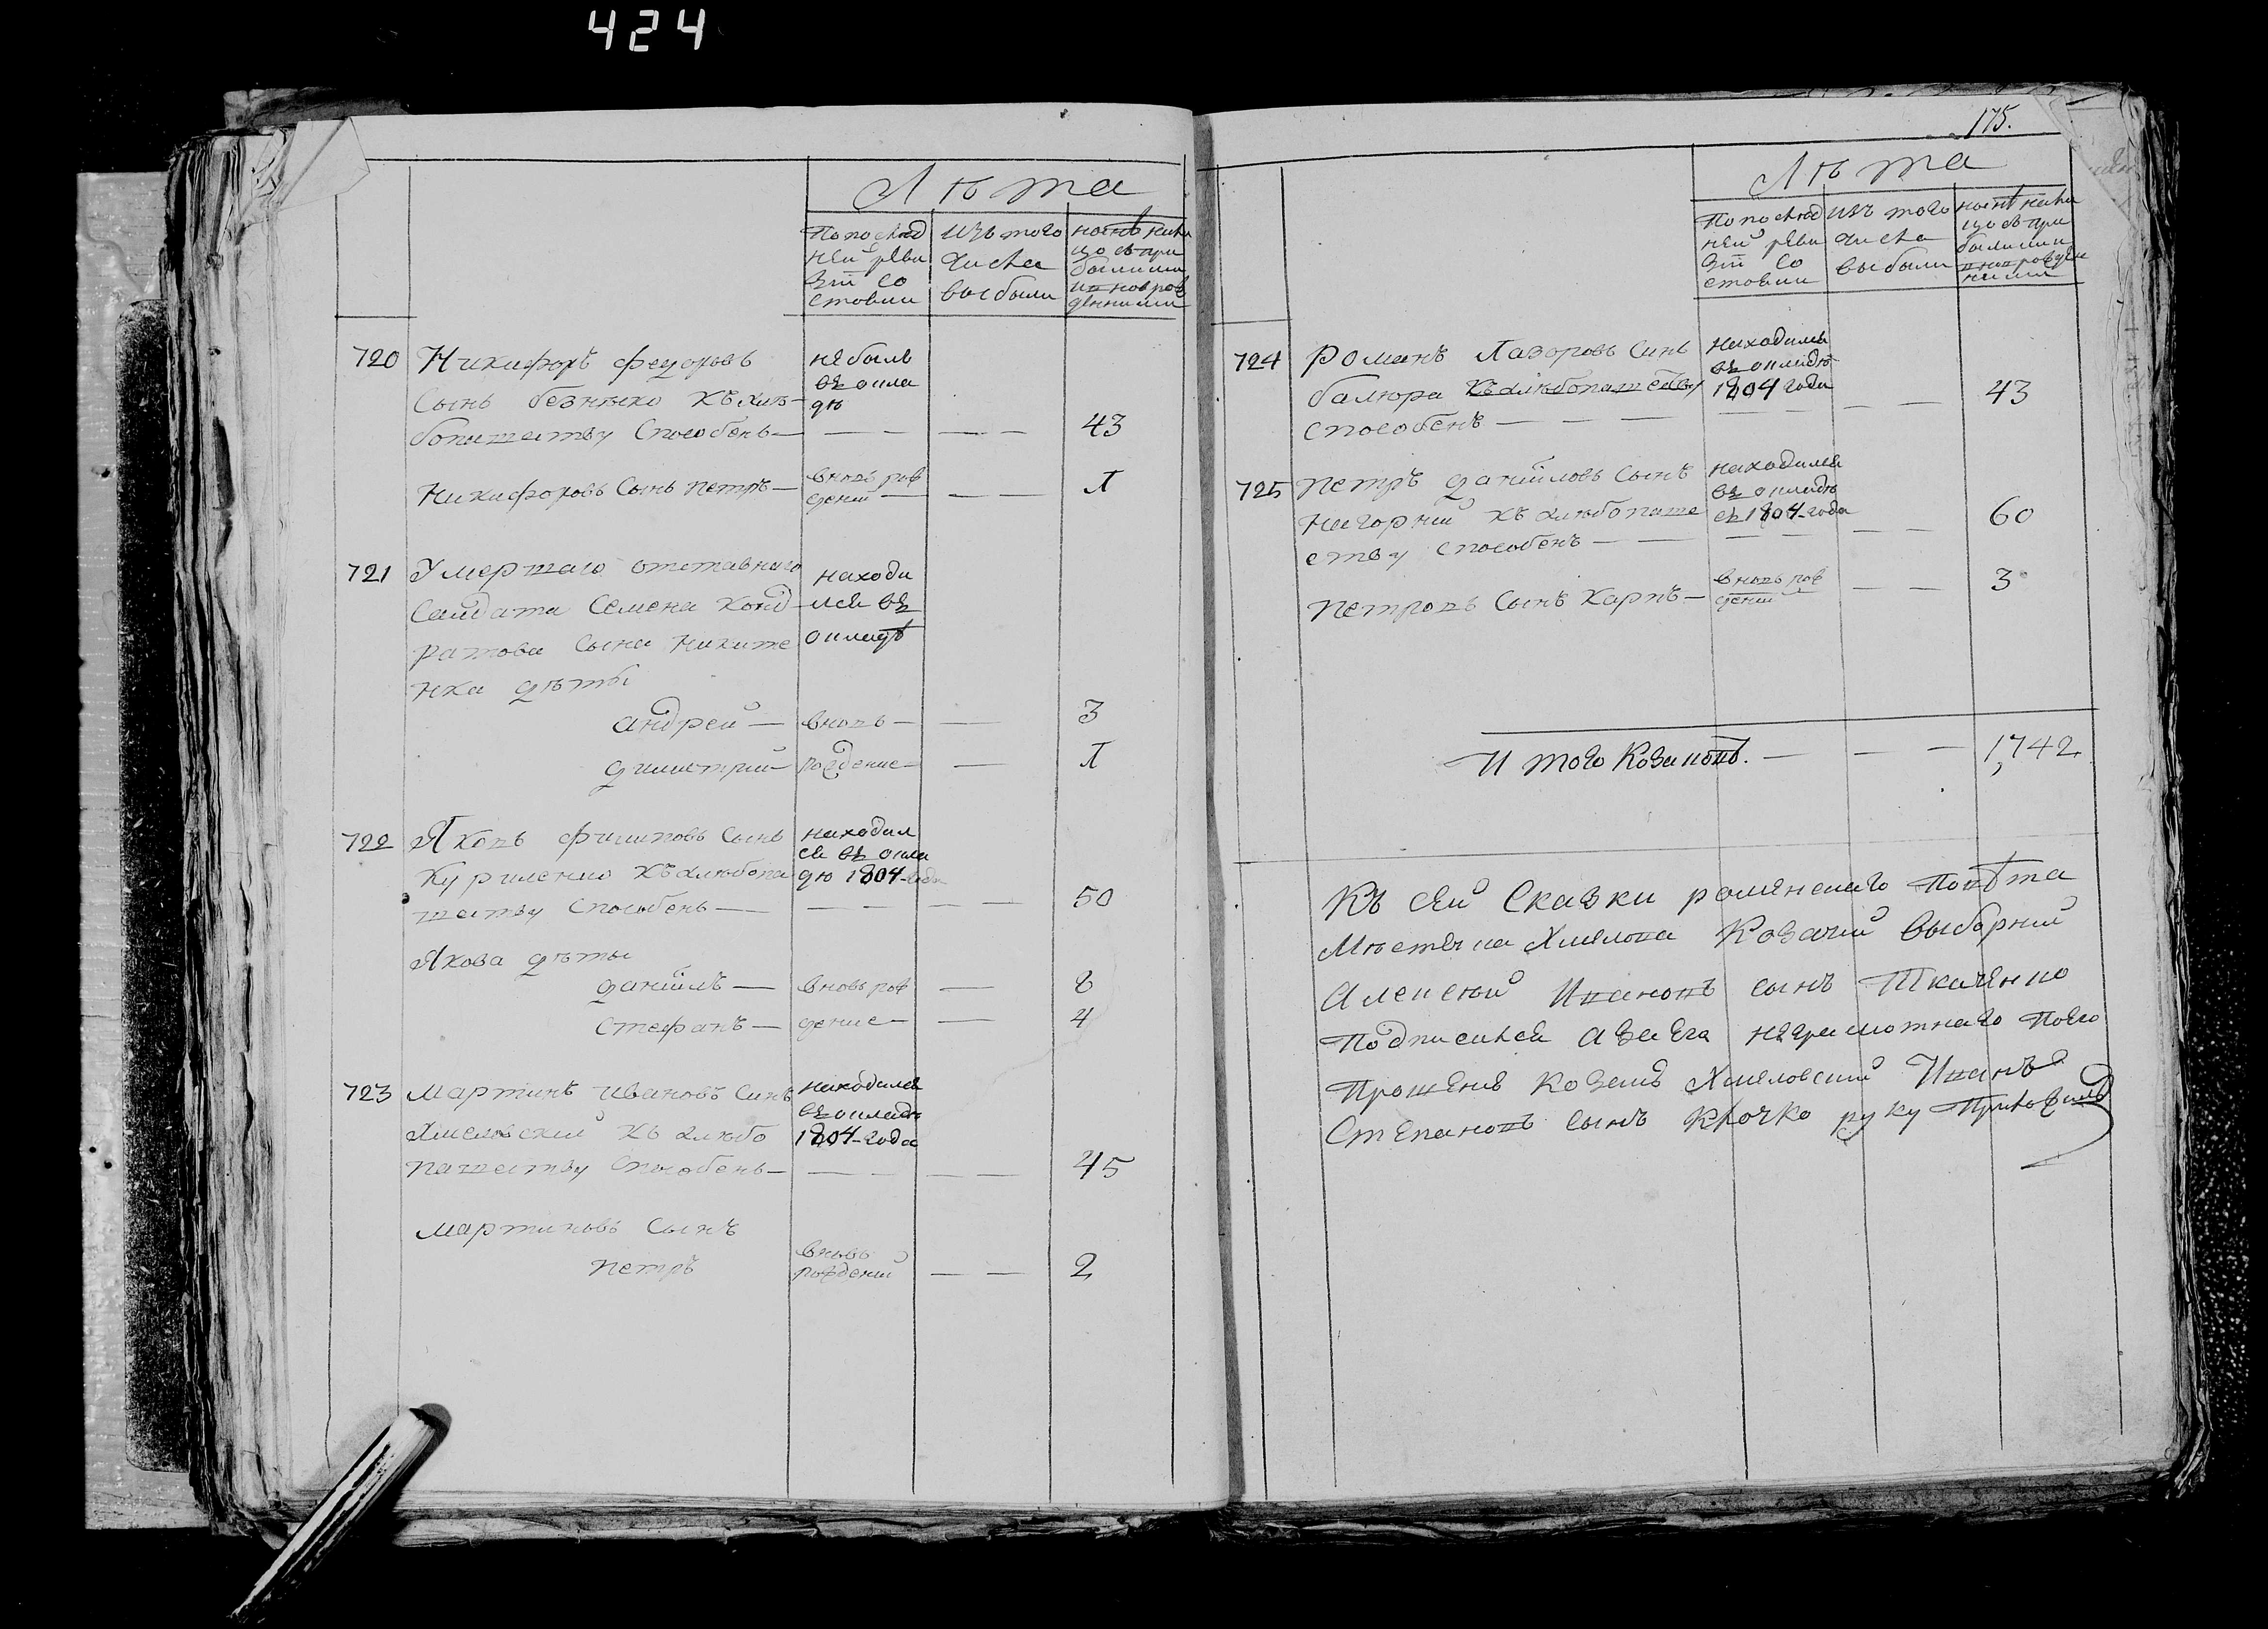 424
Лѣта
По послѣд
ней реви
зіи со
стояли
Изъ того
числа
выбыли
нынѣ на ли
цо съ при
былыми
и новорож
денними
720 Никифоръ Федоровъ
Сынъ безнѣско къ хлѣ
бопашеству Способенъ — 43
не былъ
въ окла
дѣ
Никифоровъ Сынъ Петръ — Л
вновь рож
дений
721 Умершаго отставнаго
Салдата Семена Конд
ратова Сына Никите
нка дѣти
находи
лся въ
окладѣ
андрей — вновь — 3
димитрий — рождение — Л
722 Яковъ филиповъ Сынъ
Куриленко къ хлѣбопа
шеству Способенъ — 50
находил
ся въ окла
дѣ 1804-года
Якова дѣти
даніилъ — вновь рож — 8
Стефанъ — дение — 4
723 Мартинъ Ивановъ Синъ
Хмеловский къ хлѣбо
пашеству Способенъ — 45
находился
въ окладѣ
1804-года
мартиновъ Сынъ
петръ — 2
вновь
рождений
175.
Лѣта
По послѣд
ней реви
зіи со
стояли
изъ того
числа
выбыли
нынѣ на ли
цо съ при
былими
и новорожден
ними
724 Романъ Лазоровъ Синъ
балюра къ хлѣбопашеству
способенъ — 43
находился
въ окладѣ
1804 года
725 Петръ даніиловъ Сынъ
Нагорний къ хлѣбопаше
ству Способенъ — 60
находился
въ окладѣ
съ 1804-года
Петровъ Сынъ Карпъ — 3
вновь рож
дений
Итого Козаковъ. — 1,742
Къ сей Сказки роменскаго Повѣта
Мѣстечка Хмелова Козачий выборний
Алексей Ивановъ сынъ Ткаченко
Подписался а за Его неграмотнаго Поего
Прошению Козакъ Хмеловский Иванъ
Степановъ Сынъ Крочко руку Приложилъ